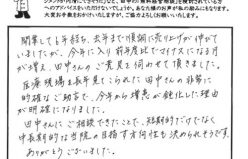 開業して6年経ち、去年まで順調に売り上げが伸びて
いましたが、今年に入り前年度比でマイナスになる月
が増え、田中さんのご意見を伺わせて頂きました。
医療現場を長年見てこられた田中さんの非常に
的確なご助言で、今年から増患が鈍化した理由
が明確になりました。
田中さんにご相談できたことで、短期的だけでなく
中長期的な当院の目指す方向性も決められそうです。
ありがとうございました。